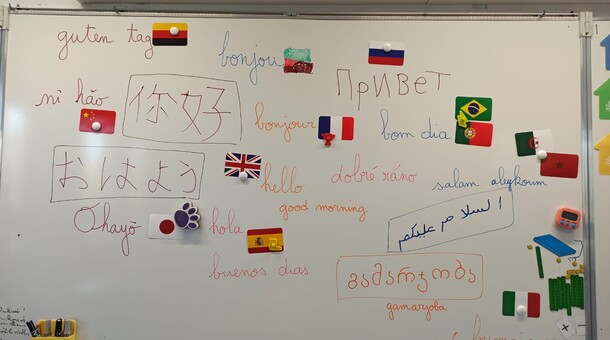 guten tag
bonjou
Привет
ni hǎo
你好
bonjour
bom dia
おはよう
hello
dobré ráno
salam aleykoum
good morning
Ohayō
hola
السلام عليكم
buenos dias
გამარჯობა
gamarjoba